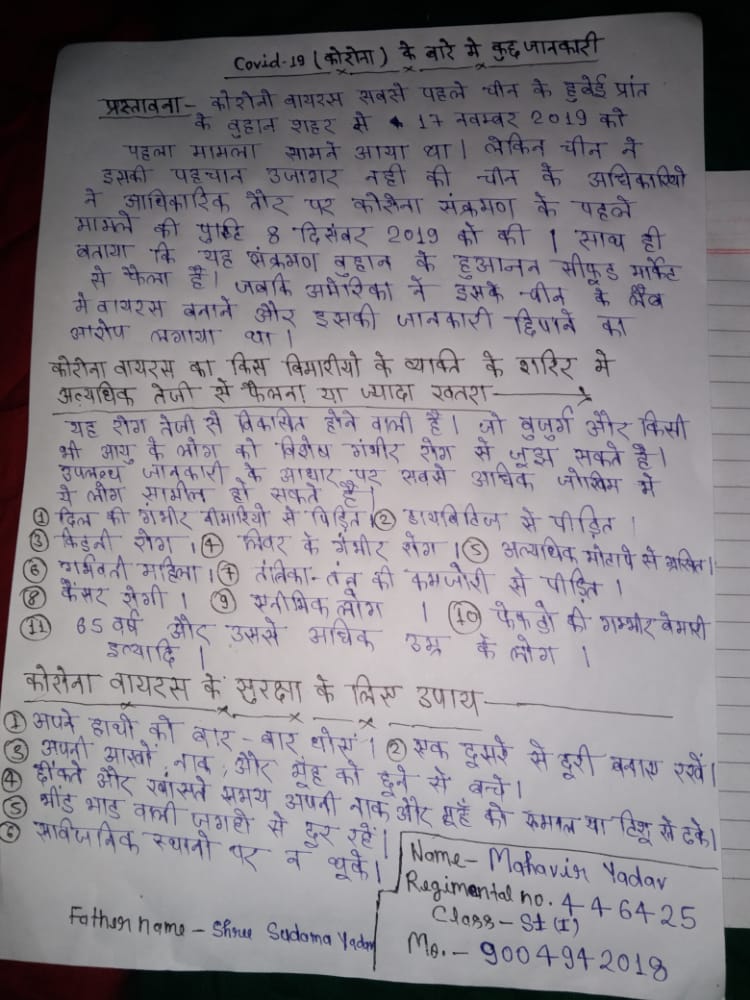 Covid-19 (कोरोना) के बारे मे कुछ जानकारी
प्रस्तावना - कोरोनो वायरस सबसे पहले चीन के हुबेई प्रांत
के वुहान शहर से 17 नवम्बर 2019 को
पहला मामला सामने आया था। लेकिन चीन ने
इसकी पहचान उजागर नही की चीन के अधिकारियो
ने आधिकारिक तौर पर कोरोना संक्रमण के पहले
मामले की पुष्टि 8 दिसंबर 2019 को की। साथ ही
बताया कि यह संक्रमण वुहान के हुआनन सीफूड मार्केट
से फैला है। जबकि अमेरिका ने इसके चीन के लैब
मे वायरस बनाने और इसकी जानकारी छिपाने का
आरोप लगाया था।
कोरोना वायरस का किस बिमारीयो के व्यक्ति के शरिर मे
अत्यधिक तेजी से फैलना या ज्यादा खतरा
यह रोग तेजी से विकासित होने वाली है। जो वुजुर्ग और किसी
भी आयु के लोग को विशेष गंभीर रोग से जूझ सकते है।
उपलब्ध जानकारी के आधार पर सबसे अधिक जोखिम मे
ये लोग सामील हो सकते है।
① दिल की गंभीर बीमारियो से पिड़ित। ② डायबिटिज से पीड़ित।
③ किडनी रोग। ④ लिवर के गंभीर रोग। ⑤ अत्यधिक मोटापे से ग्रसित।
⑥ गर्भवती महिला। ⑦ तंत्रिका-तंत्र की कमजोरी से पीड़ित।
⑧ कैंसर रोगी। ⑨ एनीमिक लोग। ⑩ फेफड़ो की गम्भीर बेमारी
⑪ 65 वर्ष और उससे अधिक उम्र के लोग।
इत्यादि।
कोरोना वायरस के सुरक्षा के लिए उपाय
① अपने हाथो को बार-बार धोएं। ② एक दूसरे से दूरी बनाए रखें।
③ अपनी आखों, नाक, और मूंह को छूने से बच्चे।
④ छींकते और खांसते समय अपनी नाक और मूहँ को रूमाल या टिशू से ढके।
⑤ भींड भाड वाली जगहो से दूर रहें।
⑥ सार्वजनिक स्थानो पर न थूके।
Name- Mahavir Yadav
Regimental no. 446425
Class- S1 (I)
Mo.- 9004942018
Father name - Shree Sudama Yadav